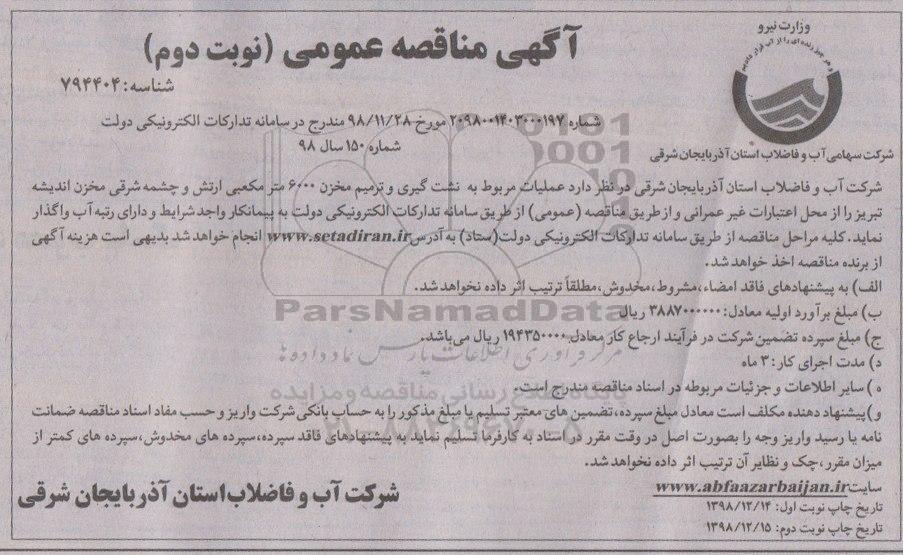 وزارت نیرو
آگهی مناقصه عمومی (نوبت دوم)
شناسه: ۷۹۴۴۰۴
شماره ۲۰۹۸۰۰۱۴۰۲۰۰۰۱۹۷ مورخ ۹۸/۱۱/۲۸ مندرج در سامانه تدارکات الکترونیکی دولت
شماره ۱۵۰ سال ۹۸
شرکت سهامی آب و فاضلاب استان آذربایجان شرقی
شرکت آب و فاضلاب استان آذربایجان شرقی در نظر دارد عملیات مربوط به نشت گیری و ترمیم مخزن ۶۰۰۰ متر مکعبی ارتش و چشمه شرقی مخزن اندیشه
تبریز را از محل اعتبارات غیر عمرانی و از طریق مناقصه (عمومی) از طریق سامانه تدارکات الکترونیکی دولت به پیمانکار واجد شرایط و دارای رتبه آب واگذار
نماید. کلیه مراحل مناقصه از طریق سامانه تدارکات الکترونیکی دولت(ستاد) به آدرس www.setadiran.ir انجام خواهد شد بدیهی است هزینه آگهی
از برنده مناقصه اخذ خواهد شد.
الف) به پیشنهادهای فاقد امضاء، مشروط، مخدوش، مطلقاً ترتیب اثر داده نخواهد شد.
ب) مبلغ برآورد اولیه معادل: ۳۸۸۷۰۰۰۰۰۰ ریال
ParsNamadData
ج) مبلغ سپرده تضمین شرکت در فرآیند ارجاع کار معادل ۱۹۴۳۵۰۰۰۰ ریال می‌باشد.
مرکز فرآوری اطلاعات پارس نماد داده‌ها
د) مدت اجرای کار: ۳ ماه
ه) سایر اطلاعات و جزئیات مربوطه در اسناد مناقصه مندرج است.
پایگاه اطلاع رسانی مناقصه و مزایده
و) پیشنهاد دهنده مکلف است معادل مبلغ سپرده، تضمین های معتبر تسلیم یا مبلغ مذکور را به حساب بانکی شرکت واریز و حسب مفاد اسناد مناقصه ضمانت
نامه یا رسید واریز وجه را بصورت اصل در وقت مقرر در اسناد به کارفرما تسلیم نماید به پیشنهادهای فاقد سپرده، سپرده های مخدوش، سپرده های کمتر از
میزان مقرر، چک و نظایر آن ترتیب اثر داده نخواهد شد.
سایت www.abfaazarbaijan.ir
شرکت آب و فاضلاب استان آذربایجان شرقی
تاریخ چاپ نوبت اول: ۱۳۹۸/۱۲/۱۴
تاریخ چاپ نوبت دوم: ۱۳۹۸/۱۲/۱۵